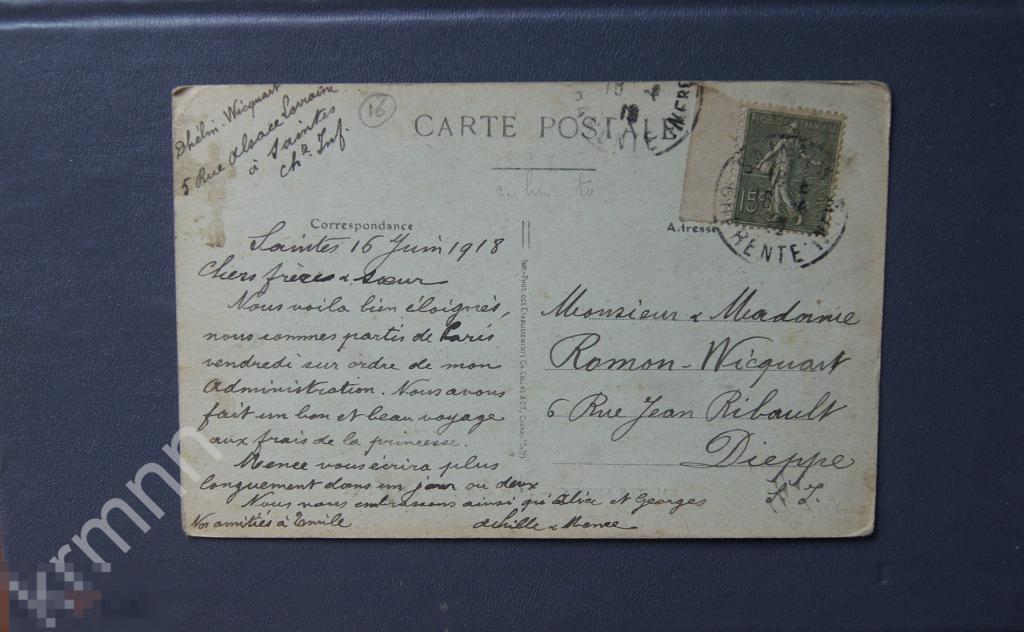 Dhélin-Wicquart
5 Rue Alsace Lorraine
à Saintes
Chte Inf.
16
CARTE POSTALE
RENTE INFRE
REPUBLIQUE FRANÇAISE
15
RENTE
Correspondance
Adresse
Saintes 16 Juin 1918
Chers frères & sœur
Nous voila bien éloignés,
nous sommes partis de Paris
vendredi sur ordre de mon
Administration. Nous avons
fait un bon et beau voyage
aux frais de la princesse.
Mence vous écrira plus
longuement dans un jour ou deux
Nous vous embrassons ainsi qu'Alice et Georges
Nos amitiés à Emile
Achille & Mence
IMP.-PHOT. DES ETABLISSEMENTS CH. COLLAS & Cie, COGNAC
Monsieur & Madame
Romon-Wicquart
6 Rue Jean Ribault
Dieppe
S. I.
krmnn